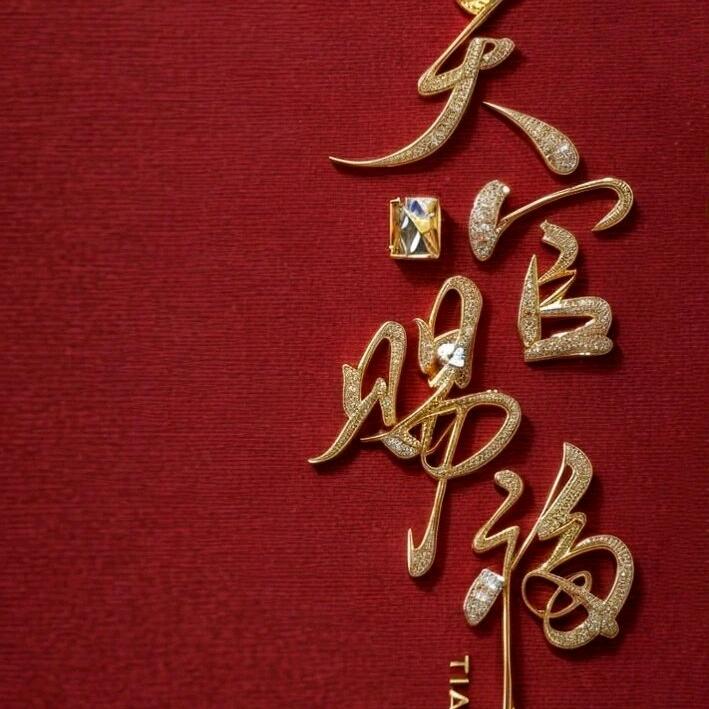 天官赐福
TIA